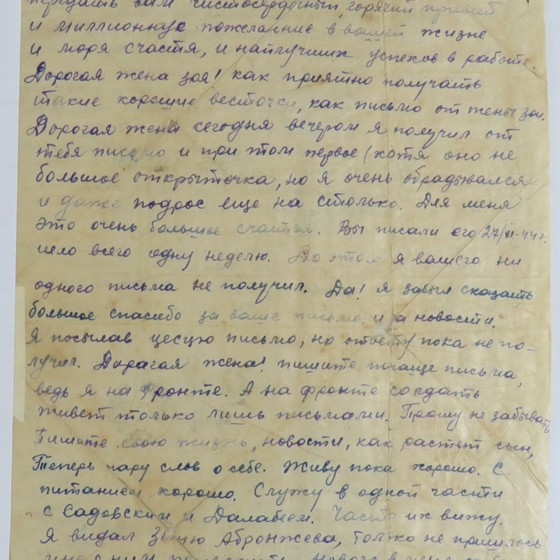 передать вам чистосердечный, горячий привет
и миллионную пожелание в вашей жизне
и моря счастя, и наилучших успехов в работе.
Дорогая жена зоя! как приятно получать
такие хорошие весточки, как письмо от жены зои.
Дорогая жена сегодня вечером я получил от
тебя письмо и при том первое (хотя оно не
большое открыточка, но я очень обрадывался
и даже подрос еще на столько. Для меня
это очень большое счастья. Вы писали его 27/VI-44г.
шло всего одну неделю. До этого я вашего ни
одного письма не получил. Да! я забыл сказать
большое спасибо за ваше письмо и за новости.
Я посылав цесцю письмо, но ответу пока не по-
лучил. Дарагая жена! пишите почаще письма,
ведь я на фронте. А на фронте солдать
живет только лишь письмами. Прошу не забывать
Пишите свою жизнь, новости, как растет сын,
Теперь пару слов о себе. Живу пока хорошо. С
питанием хорошо. Служу в одной части
с Садовским и Далабеем. Часто их вижу.
Я видал Абронжева, только не пришлось